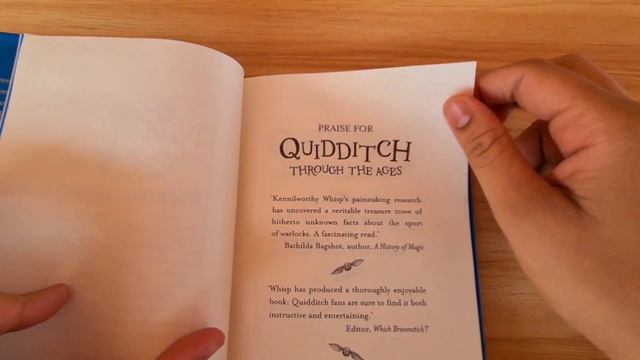 PRAISE FOR
QUIDDITCH
THROUGH THE AGES
'Kennilworthy Whisp's painstaking research
has uncovered a veritable treasure trove of
hitherto unknown facts about the sport
of warlocks. A fascinating read.'
Bathilda Bagshot, author, A History of Magic
'Whisp has produced a thoroughly enjoyable
book; Quidditch fans are sure to find it both
instructive and entertaining.'
Editor, Which Broomstick?